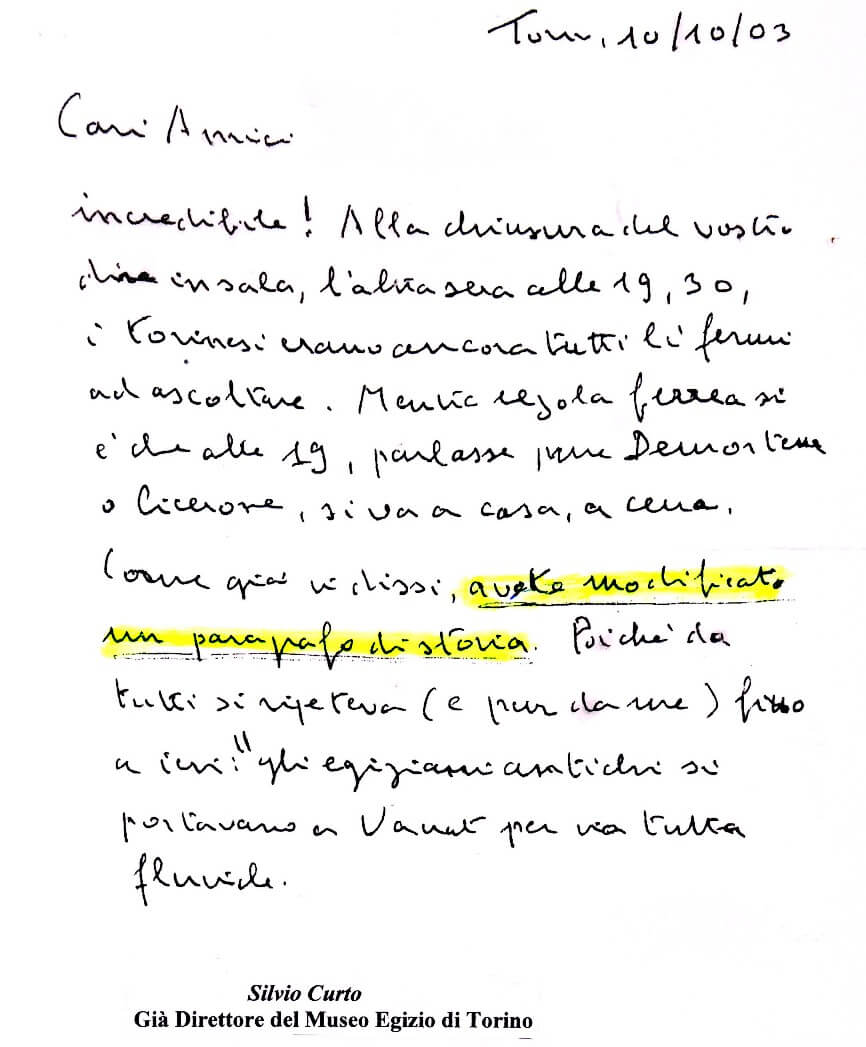 Torino, 10/10/03
Cari Amici
incredibile! Alla chiusura del vostro
dire in sala, l'altra sera alle 19,30,
i torinesi erano ancora tutti lì fermi
ad ascoltare. Mentre regola ferrea si
è che alle 19, parlasse pure Demostene
o Cicerone, si va a casa, a cena.
Come già vi dissi, avete modificato
un paragrafo di storia. Poiché da
tutti si ripeteva (e pur da me) fino
a ieri: "gli egiziani antichi si
portavano a Vauat per via tutta
fluviale.
Silvio Curto
Già Direttore del Museo Egizio di Torino